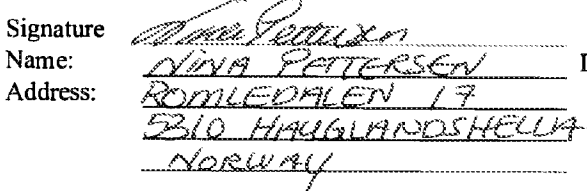 Signature Nina Pettersen
Name: NINA PETTERSEN
Address: ROMLEDALEN 17
5310 HAUGLANDSHELLA
NORWAY